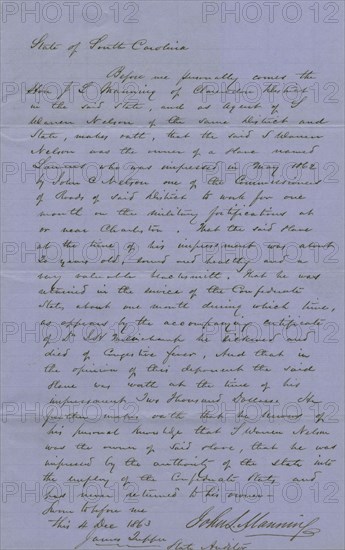 State of South Carolina
Before me personally comes the
Hon J. L. Manning of Clarendon District
in the said State, and as Agent of S
Warren Nelson of the same District and
State, makes oath, that the said S Warren
Nelson was the owner of a slave named
who was impressed in May 1862
by John C Nelson one of the Commissioners
of Roads of said District to work for one
month on the Military fortifications at
or near Charleston. That the said slave
at the time of his impressment was about
years old, sound and healthy and a
very valuable blacksmith. That he was
retained in the service of the Confederate
States about one month during which time,
as appears by the accompanying certificate
of Dr he sickened and
died of Congestive fever, And that in
the opinion of this deponent the said
Slave was worth at the time of his
impressment Two Thousand Dollars. He
further makes oath that he knows of
his personal knowledge that S. Warren Nelson
was the owner of said slave, that he was
impressed by the authority of the State into
the employ of the Confederate States, and
has never returned to his owner.
Sworn to before me
This 4 Dec 1863
John L Manning
James Tupper
State Auditor